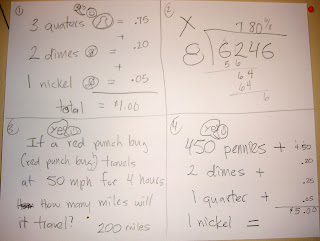 ①
3 quaters = .75
+
2 dimes = .20
+
1 nickel = .05
total = $1.00
②
X
7 80 6/8
8 6246
56
64
64
6
③
If a red punch bug
(red punch bug) travels
at 50 mph for 4 hours
How many miles will
it travel? 200 miles
④
Yes
450 pennies + 4.50
2 dimes + .20
1 quarter + .25
1 nickel = .05
$5.00